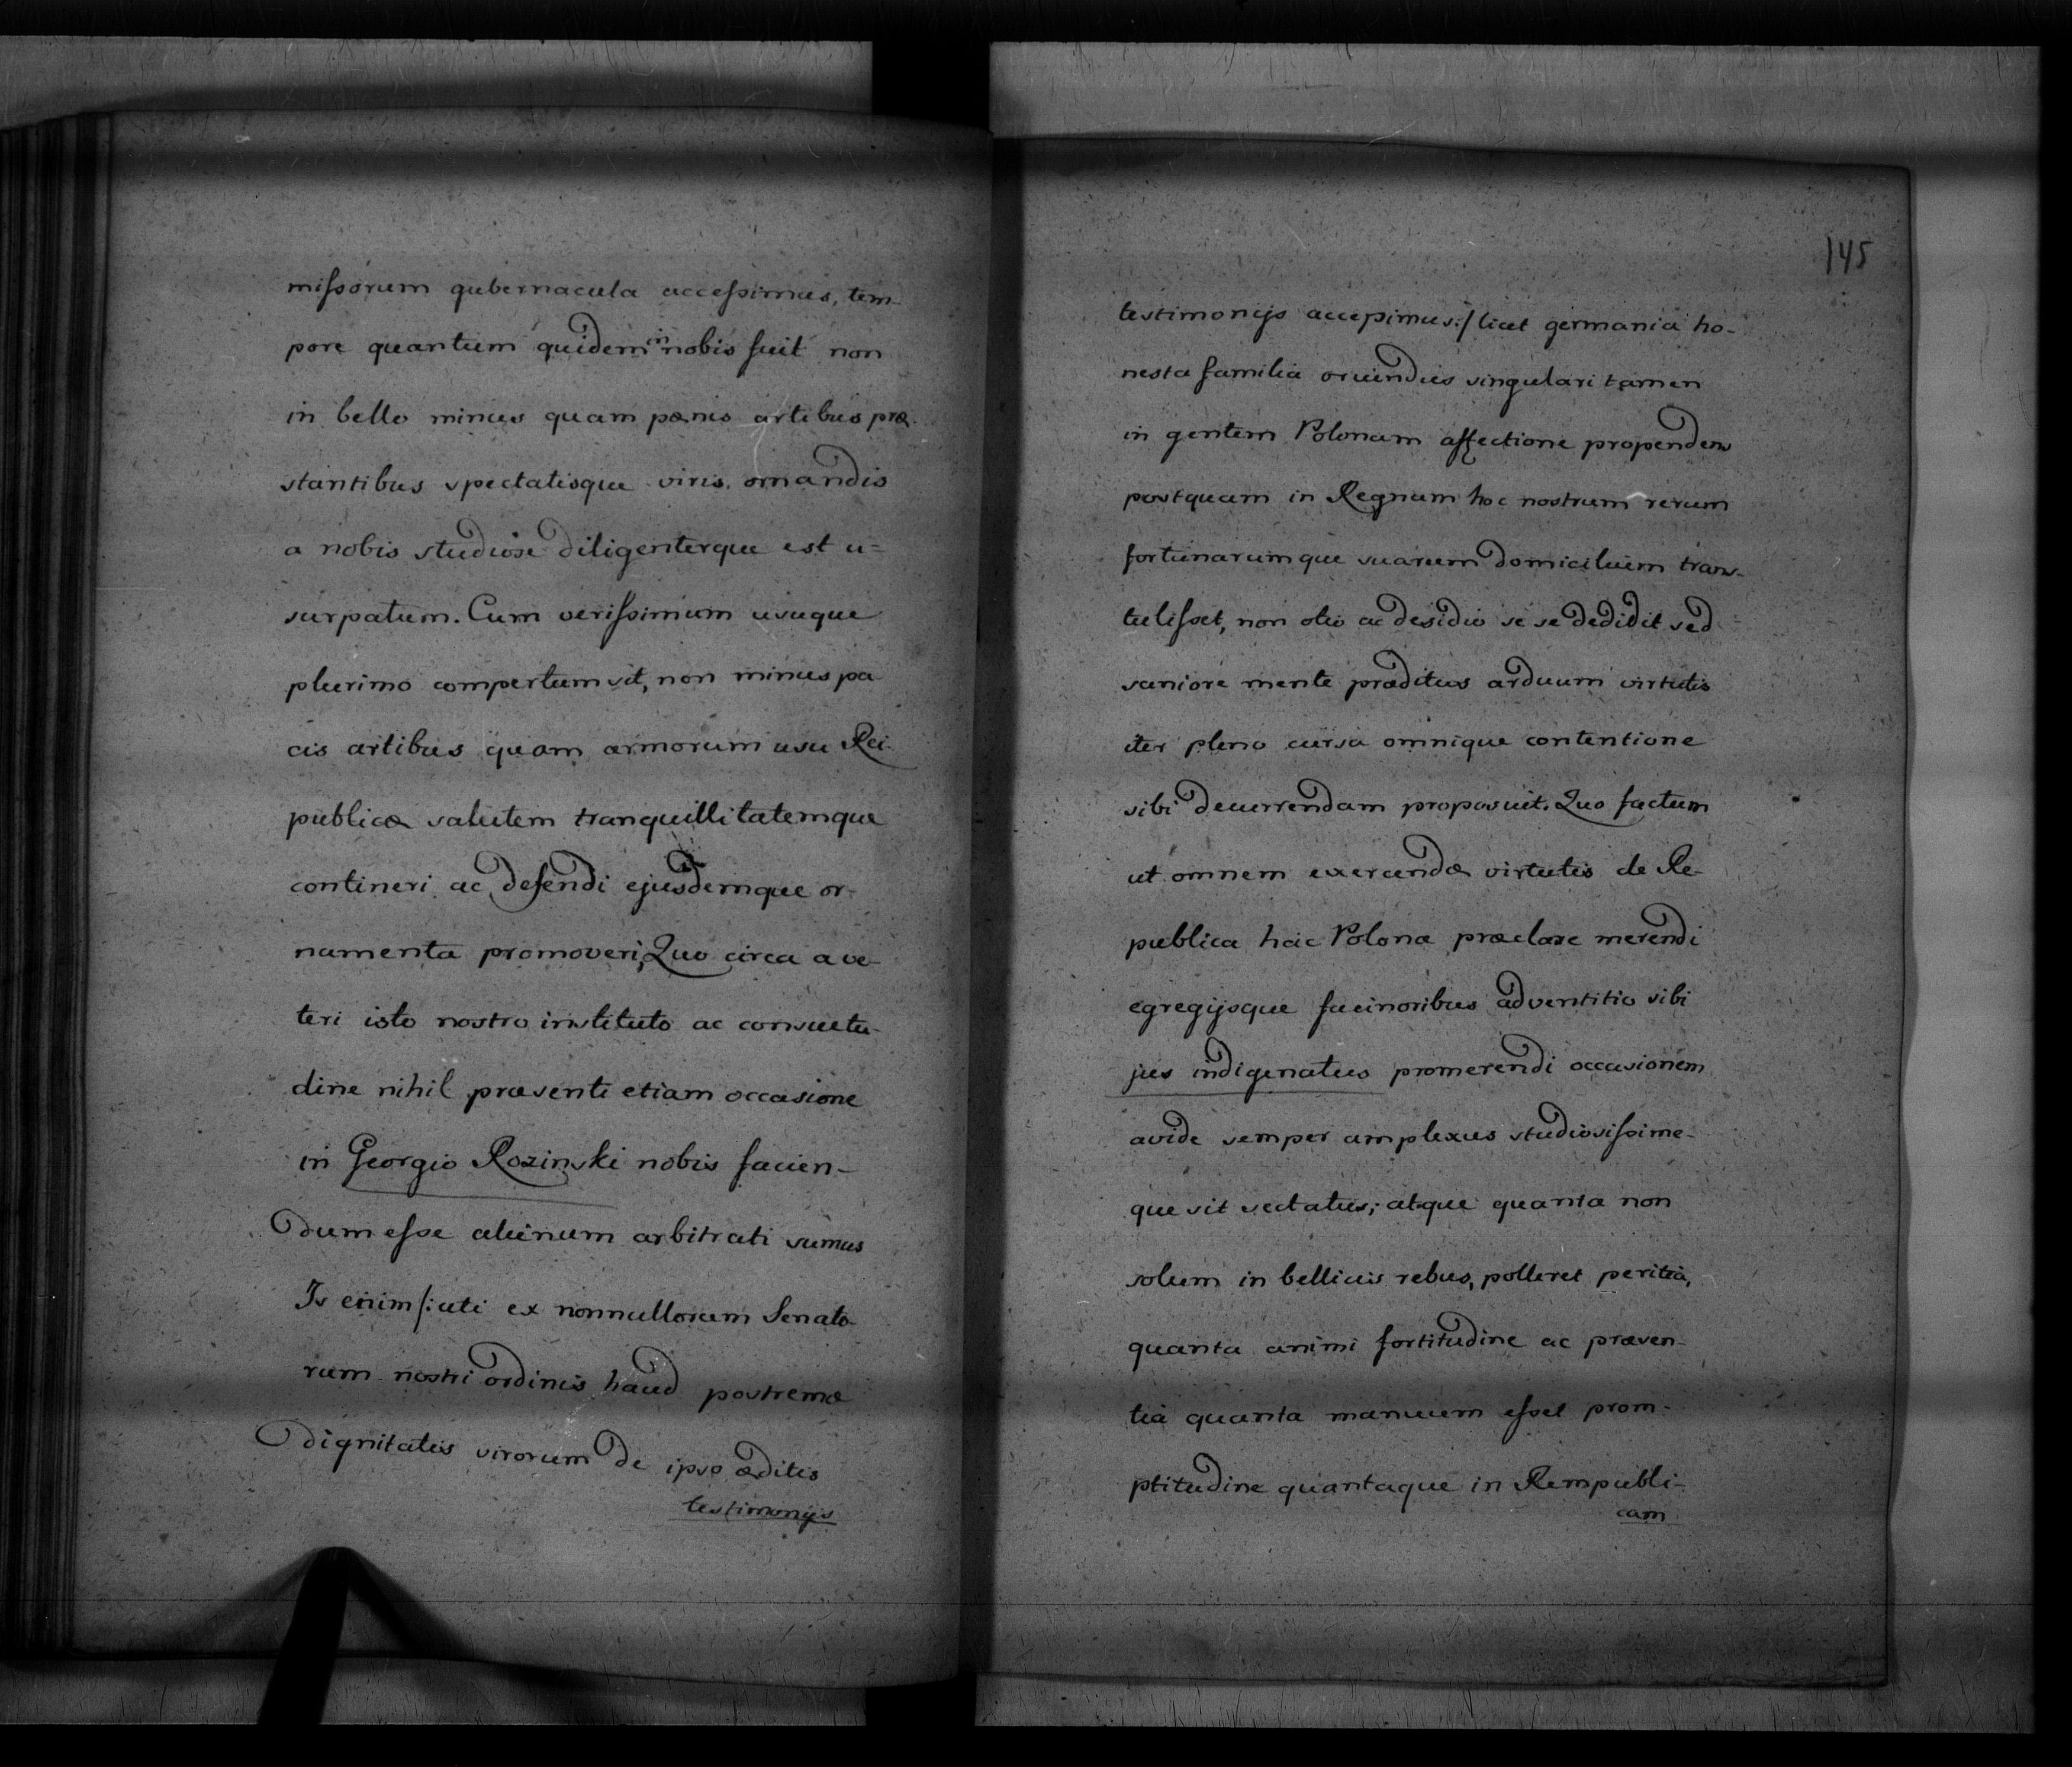 missorum gubernacula accessimus, tem-
pore quantum quidem in nobis fuit non
in bello minus quam pænis artibus præ-
stantibus spectatisque viris ornandis
a nobis studiose diligenterque est u=
surpatum. Cum verissimum usuque
plurimo compertum sit, non minus pa-
cis artibus quam armorum usu Rei-
publicæ salutem tranquillitatemque
contineri ac defendi ejusdemque or-
namenta promoveri, Quo circa a ve-
teri isto nostro instituto ac consuetu-
dine nihil præsenti etiam occasione
in Georgio Rozinski nobis facien-
dum esse alienum arbitrati sumus
Is enim /: uti ex nonnullorum Senato-
rum nostri ordinis haud postremæ
dignitatis virorum de ipso æditis
testimonijs
145
testimonijs accepimus :/ licet germania ho-
nesta familia oriundus singulari tamen
in gentem Polonam affectione propendens
postquam in Regnum hoc nostrum rerum
fortunarumque suarum domicilium trans-
tulisset, non otio ac desidio se se dedidit sed
saniore mente præditus arduum virtutis
iter pleno cursu omnique contentione
sibi decurrendam proposuit. Quo factum
ut omnem exercendæ virtutis de Re-
publica hac Polona præclare merendi
egregijsque facinoribus adventitio sibi
jus indigenatus promerendi occasionem
avide semper amplexus studiosissime-
que sit sectatus; atque quanta non
solum in bellicis rebus, polleret peritia,
quanta animi fortitudine ac præsen-
tia quanta manuum esset prom-
ptitudine quantaque in Rempubli-
cam